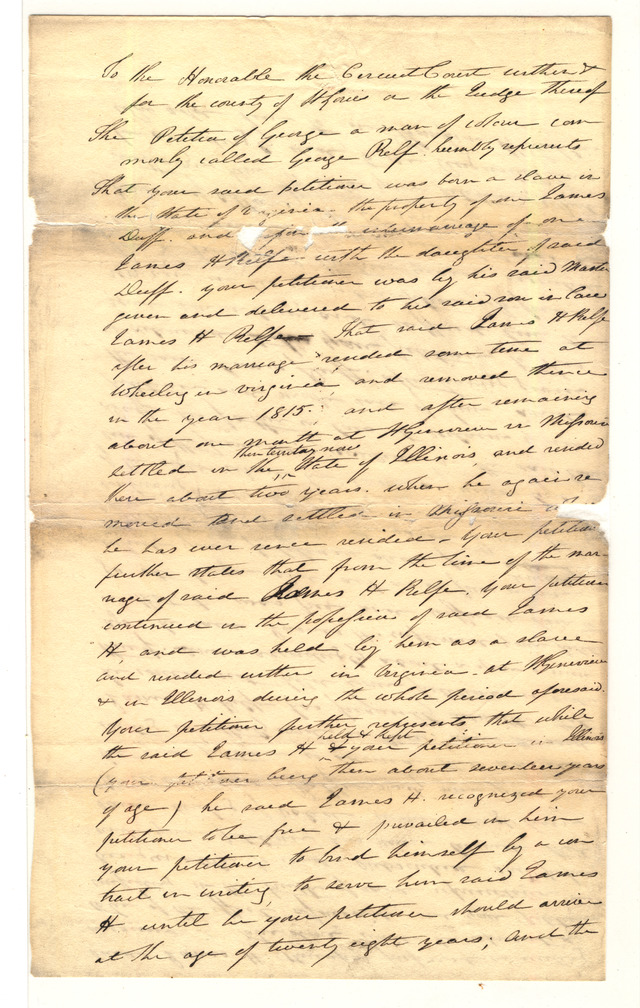 To the Honorable the Circuit Court within &
for the county of St Louis or the Judge thereof
The Petition of George a man of colour com
monly called George Relf. humbly represents
That your said petitioner was born a slave in
the State of Virginia. the property of one James
Duff. and upon intermarriage of one
James H Relfe with the daughter of said
Duff. your petitioner was by his said Master
given and delivered to his said son in law
James H Relfe That said James H Relfe
after his marriage resided some time at
Wheeling in virginia, and removed thence
in the year 1815. and after remaining
about one month at St Genevieve in Missouri
then territory now
settled in the State of Illinois, and resided
there about two years. when he again re
moved and settled in Missouri
he has ever since resided - Your petitioner
further states that from the time of the mar
riage of said James H Relfe. Your petitioner
continued in the possession of said James
H, and was held by him as a slave
and resided with him in Virginia. at St Genevieve
& in Illinois during the whole period aforesaid.
Your petitioner further represents that while
held & kept
the said James H & your petitioner in Illinois
(your petitioner being then about seventeen years
of age) he said James H. recognized your
petitioner to be free & prevailed on him
your petitioner to bind himself by a con
tract in writing, to serve him said James
H until he your petitioner should arrive
at the age of twenty eight years; and the